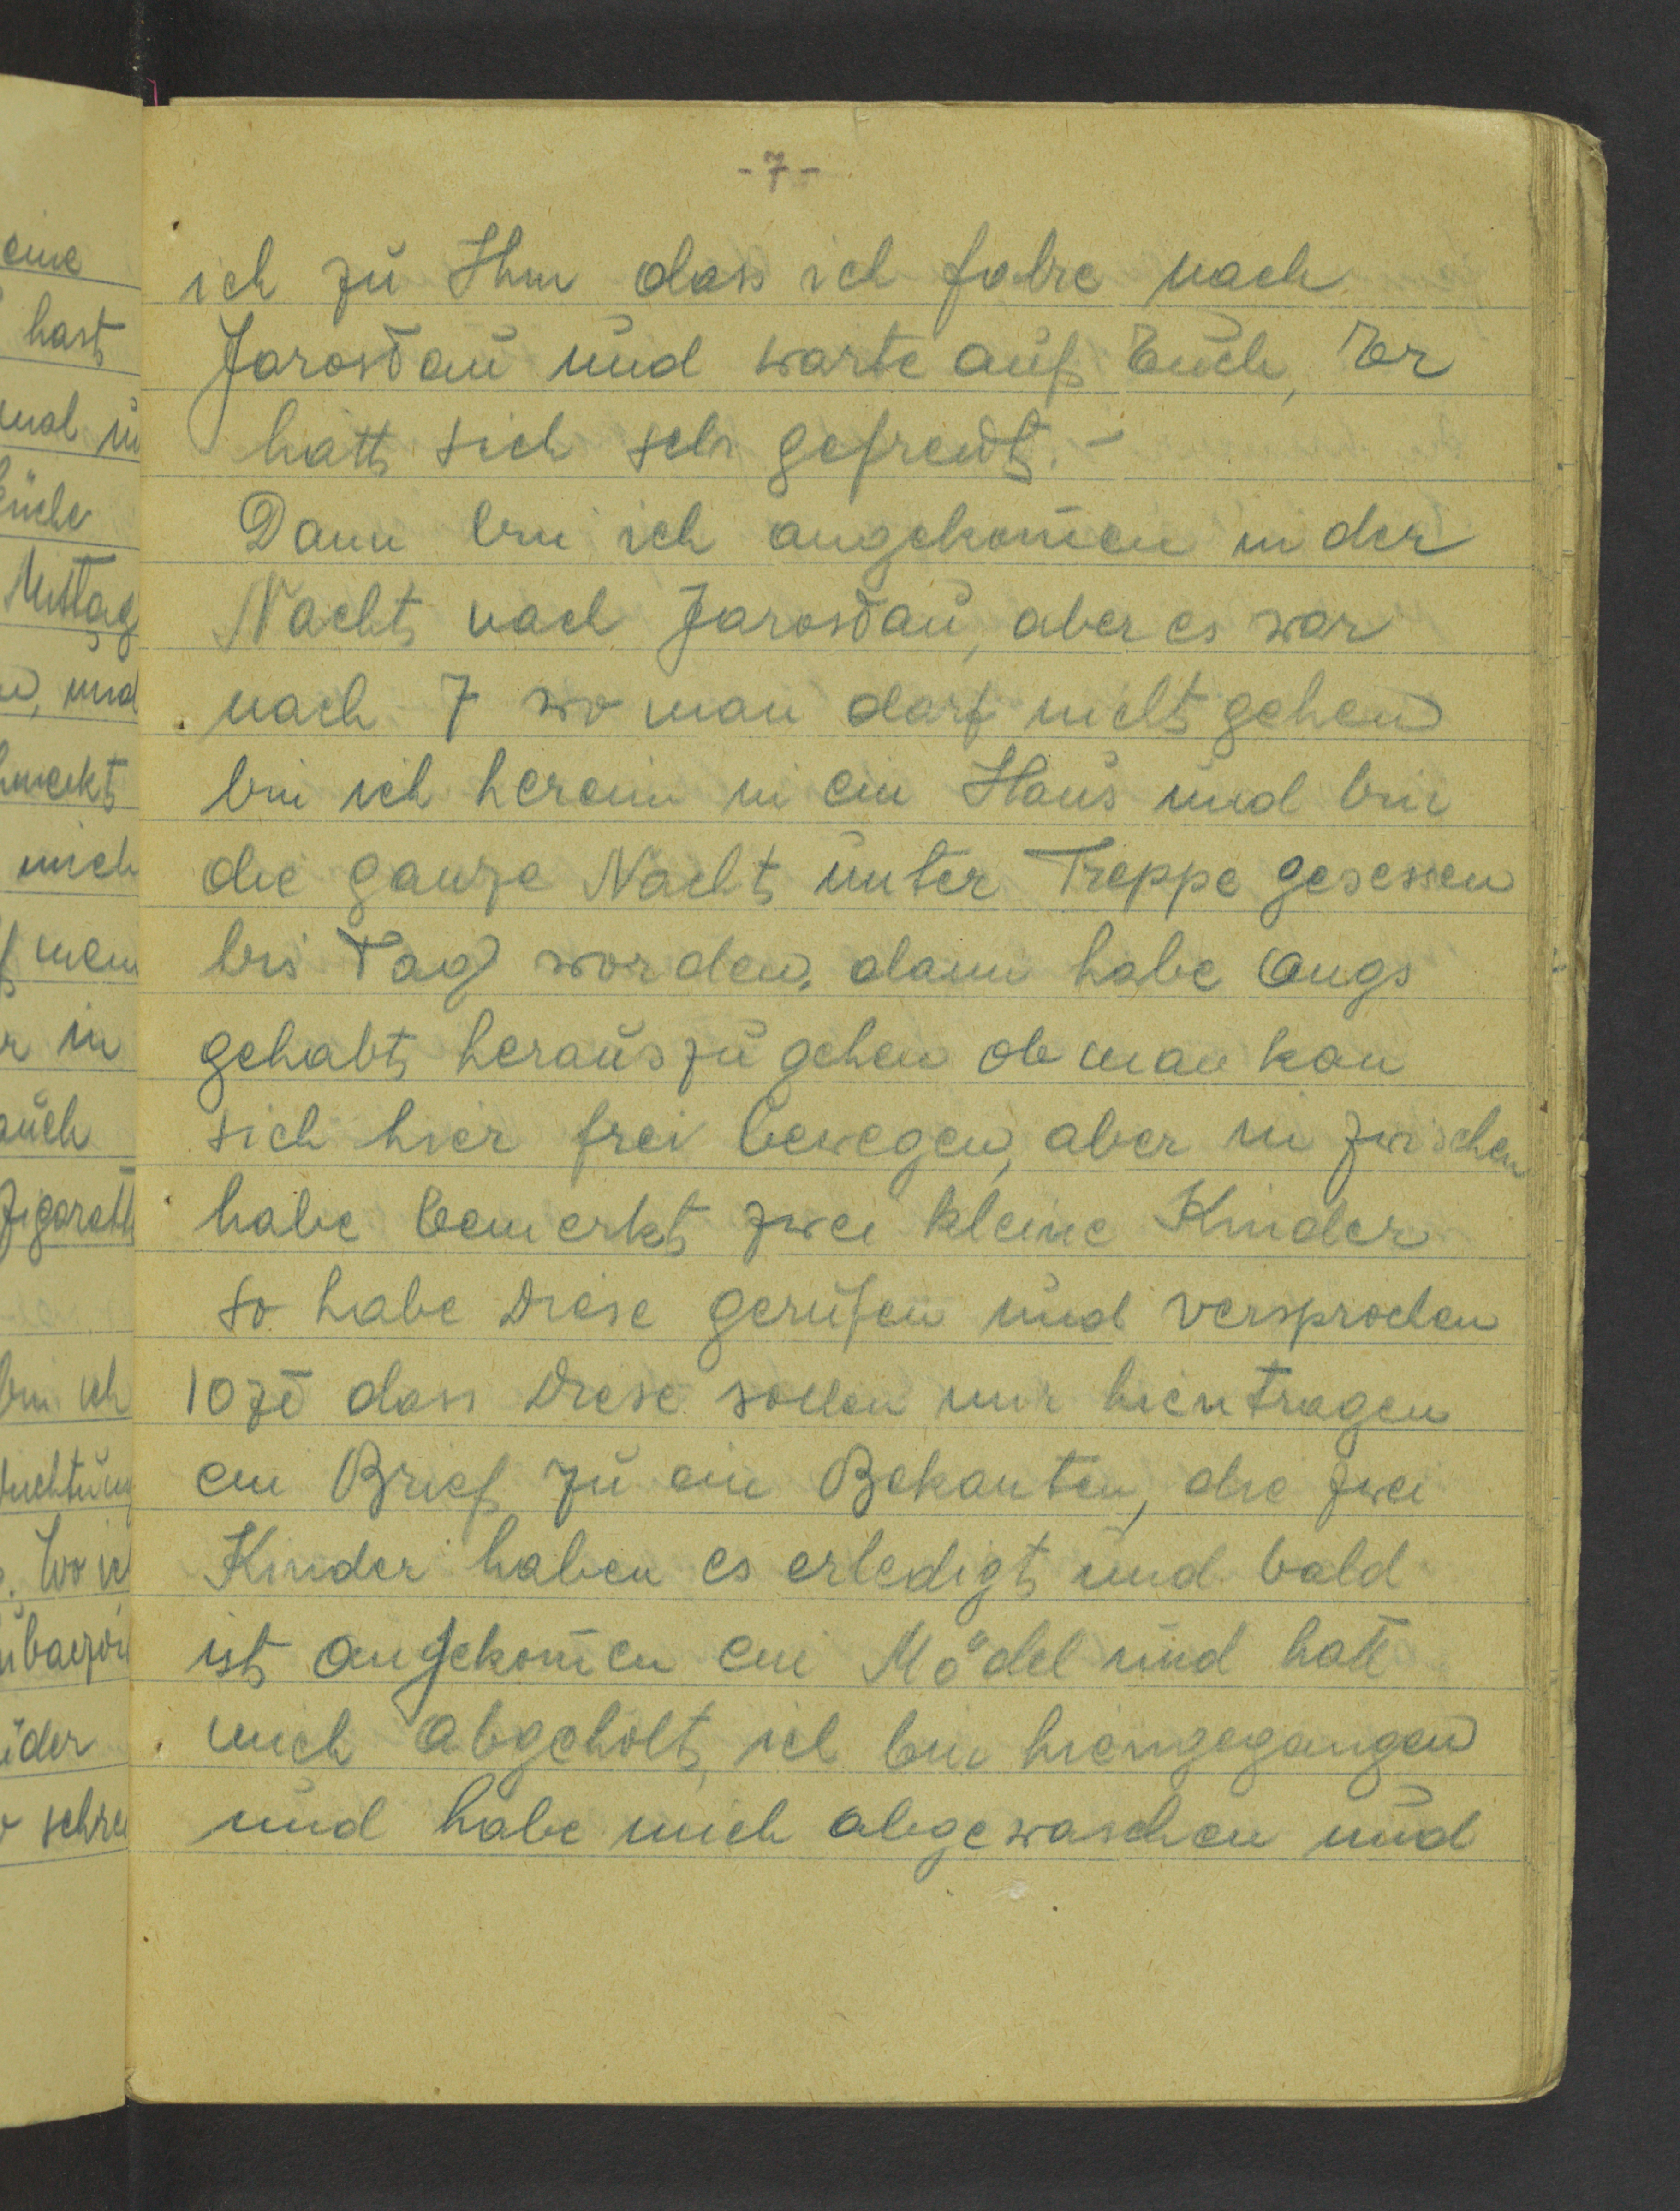 -7-
ich zu Ihm dass ich fahre nach
Jarosłau und warte auf Euch, Er
hatt sich sehr gefreut.-
Dann bin ich angekom̄en in der
Nacht nach Jarosłau, aber es war
nach 7 wo man darf nicht gehen
bin ich herein in ein Haus und bin
die ganze Nacht unter Treppe gesessen
bis Tag worden, dann habe Angs
gehabt herauszugehen ob man kan
sich hier frei bewegen, aber in zwischen
habe bemerkt zwei kleine Kinder
so habe Diese gerufen und versprochen
10 zł dass Diese sollen mir hientragen
ein Brief zu ein Bekanten, die zwei
Kinder haben es erledigt und bald
ist angekom̄en ein Mädel und hatt
mich abgeholt, ich bin hiengegangen
und habe mich abgewaschen und
eine
hast
mal
Mittag
und
mich
in
auch
bin ich